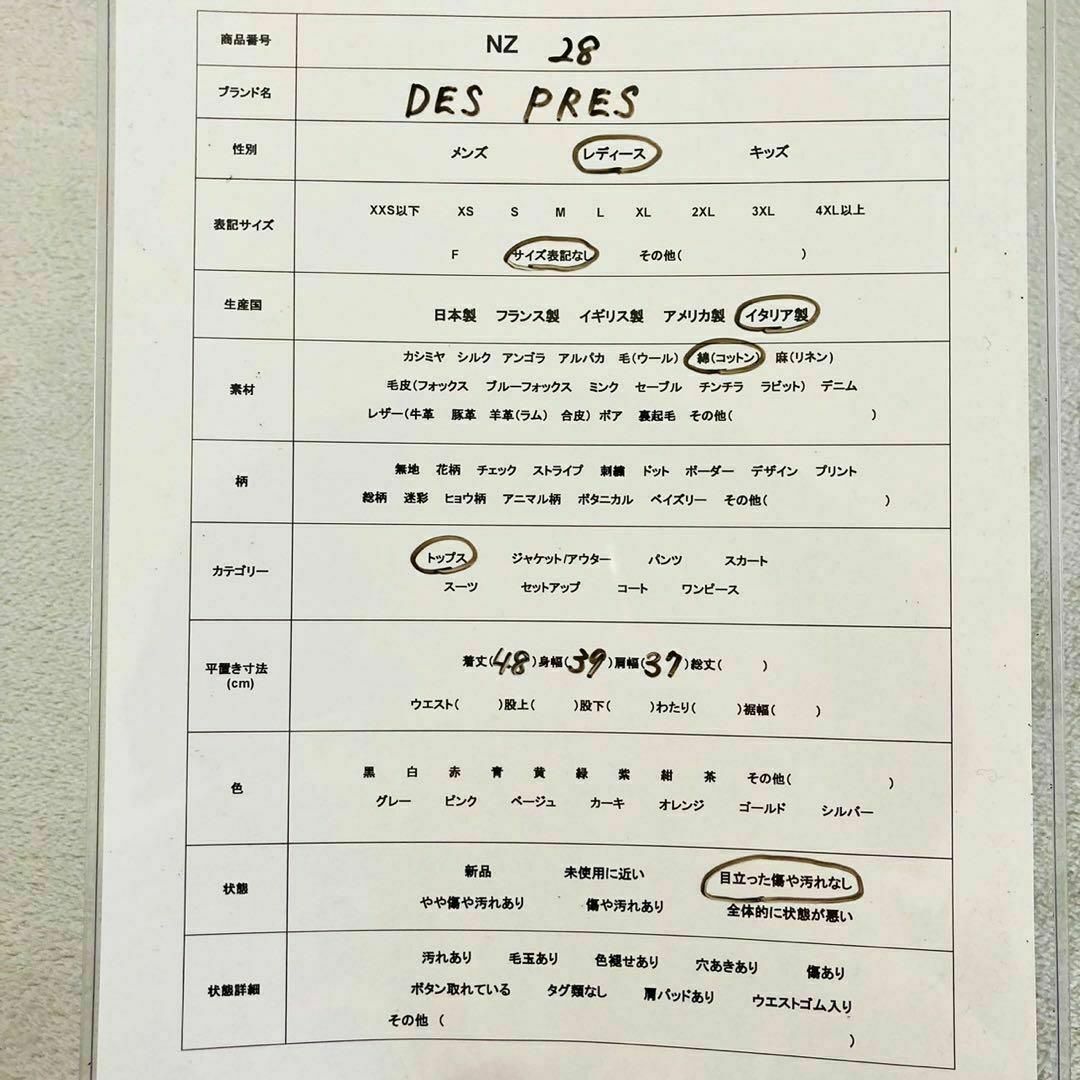 商品番号 NZ 28
ブランド名 DES PRES
性別 メンズ レディース キッズ
XXS以下 XS S M L XL 2XL 3XL 4XL以上
表記サイズ
F サイズ表記なし その他( )
生産国 日本製 フランス製 イギリス製 アメリカ製 イタリア製
カシミヤ シルク アンゴラ アルパカ 毛(ウール) 綿(コットン) 麻(リネン)
素材 毛皮(フォックス ブルーフォックス ミンク セーブル チンチラ ラビット) デニム
レザー(牛革 豚革 羊革(ラム) 合皮) ボア 裏起毛 その他( )
無地 花柄 チェック ストライプ 刺繍 ドット ボーダー デザイン プリント
柄
総柄 迷彩 ヒョウ柄 アニマル柄 ボタニカル ペイズリー その他( )
トップス ジャケット/アウター パンツ スカート
カテゴリー
スーツ セットアップ コート ワンピース
平置き寸法 着丈(48)身幅(39)肩幅(37)総丈( )
(cm)
ウエスト( )股上( )股下( )わたり( )裾幅( )
黒 白 赤 青 黄 緑 紫 紺 茶 その他( )
色
グレー ピンク ベージュ カーキ オレンジ ゴールド シルバー
新品 未使用に近い 目立った傷や汚れなし
状態
やや傷や汚れあり 傷や汚れあり 全体的に状態が悪い
汚れあり 毛玉あり 色褪せあり 穴あきあり 傷あり
状態詳細 ボタン取れている タグ類なし 肩パッドあり ウエストゴム入り
その他 ( )